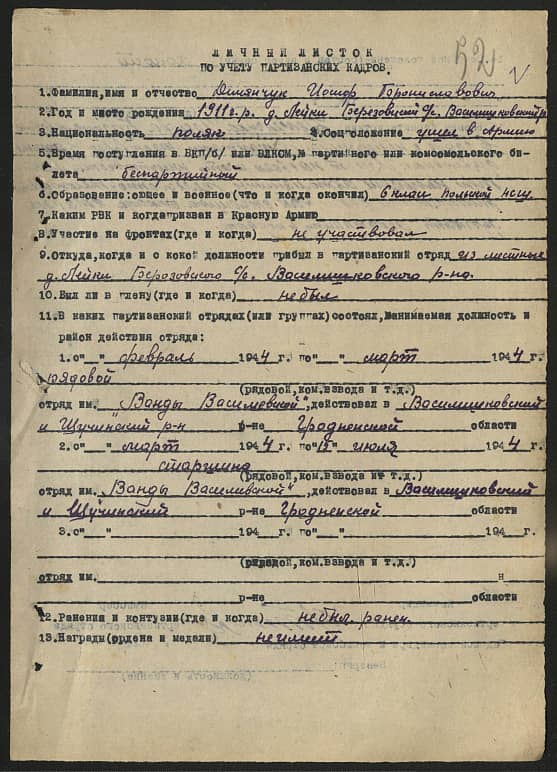 52 √
ЛИЧНЫЙ ЛИСТОК
ПО УЧЕТУ ПАРТИЗАНСКИХ КАДРОВ.
1.Фамилия,имя и отчество Демянчук Иосиф Брониславович
2.Год и место рождения 1911 г.р. д. Лейки Березовский с/с. Васишковский р
3.Национальность поляк 4.Соц.положение ушел в Армию
5.Время поступления в ВКП/б/ или ВЛКСМ,№ партийного или комсомольского би-
лета беспартийной
6.Образование:общее и военное(что и когда окончил) 6 клас польской
7.Каким РВК и когда призван в Красную Армию
8.Участие на фронтах(где и когда) не участвовал
9.Откуда,когда и с какой должности прибыл в партизанский отряд из местных
д. Лейки Березовского с/с. Василишковского р-на.
10.Был ли в плену(где и когда) не был
11.В каких партизанский отрядах(или группах)состоял,занимаемая должность и
район действия отряда:
1.с"__" февраль 1944 г. по"__" март 1944 г.
рядовой
(рядовой,ком.взвода и т.д.)
отряд им. "Ванды Василевской",действовал в "Васишковский
и Щучинский р-н р-не Гродненской области
2.с"__" март 1944 г. по"15" июля 1944 г.
старшина
(рядовой,ком.взвода ит т.д.)
отряд им. "Ванды Василевской",действовал в Васишковский
и Щучинский р-не Гродненской области
3.с"__" 194_ г. по"__" 194_ г.
(рядовой,ком.взвода и т.д.)
отряд им. н
р-не области
12.Ранения и контузии(где и когда) не был ранен.
13.Награды(ордена и медали) не имеет.
(должность и звание)